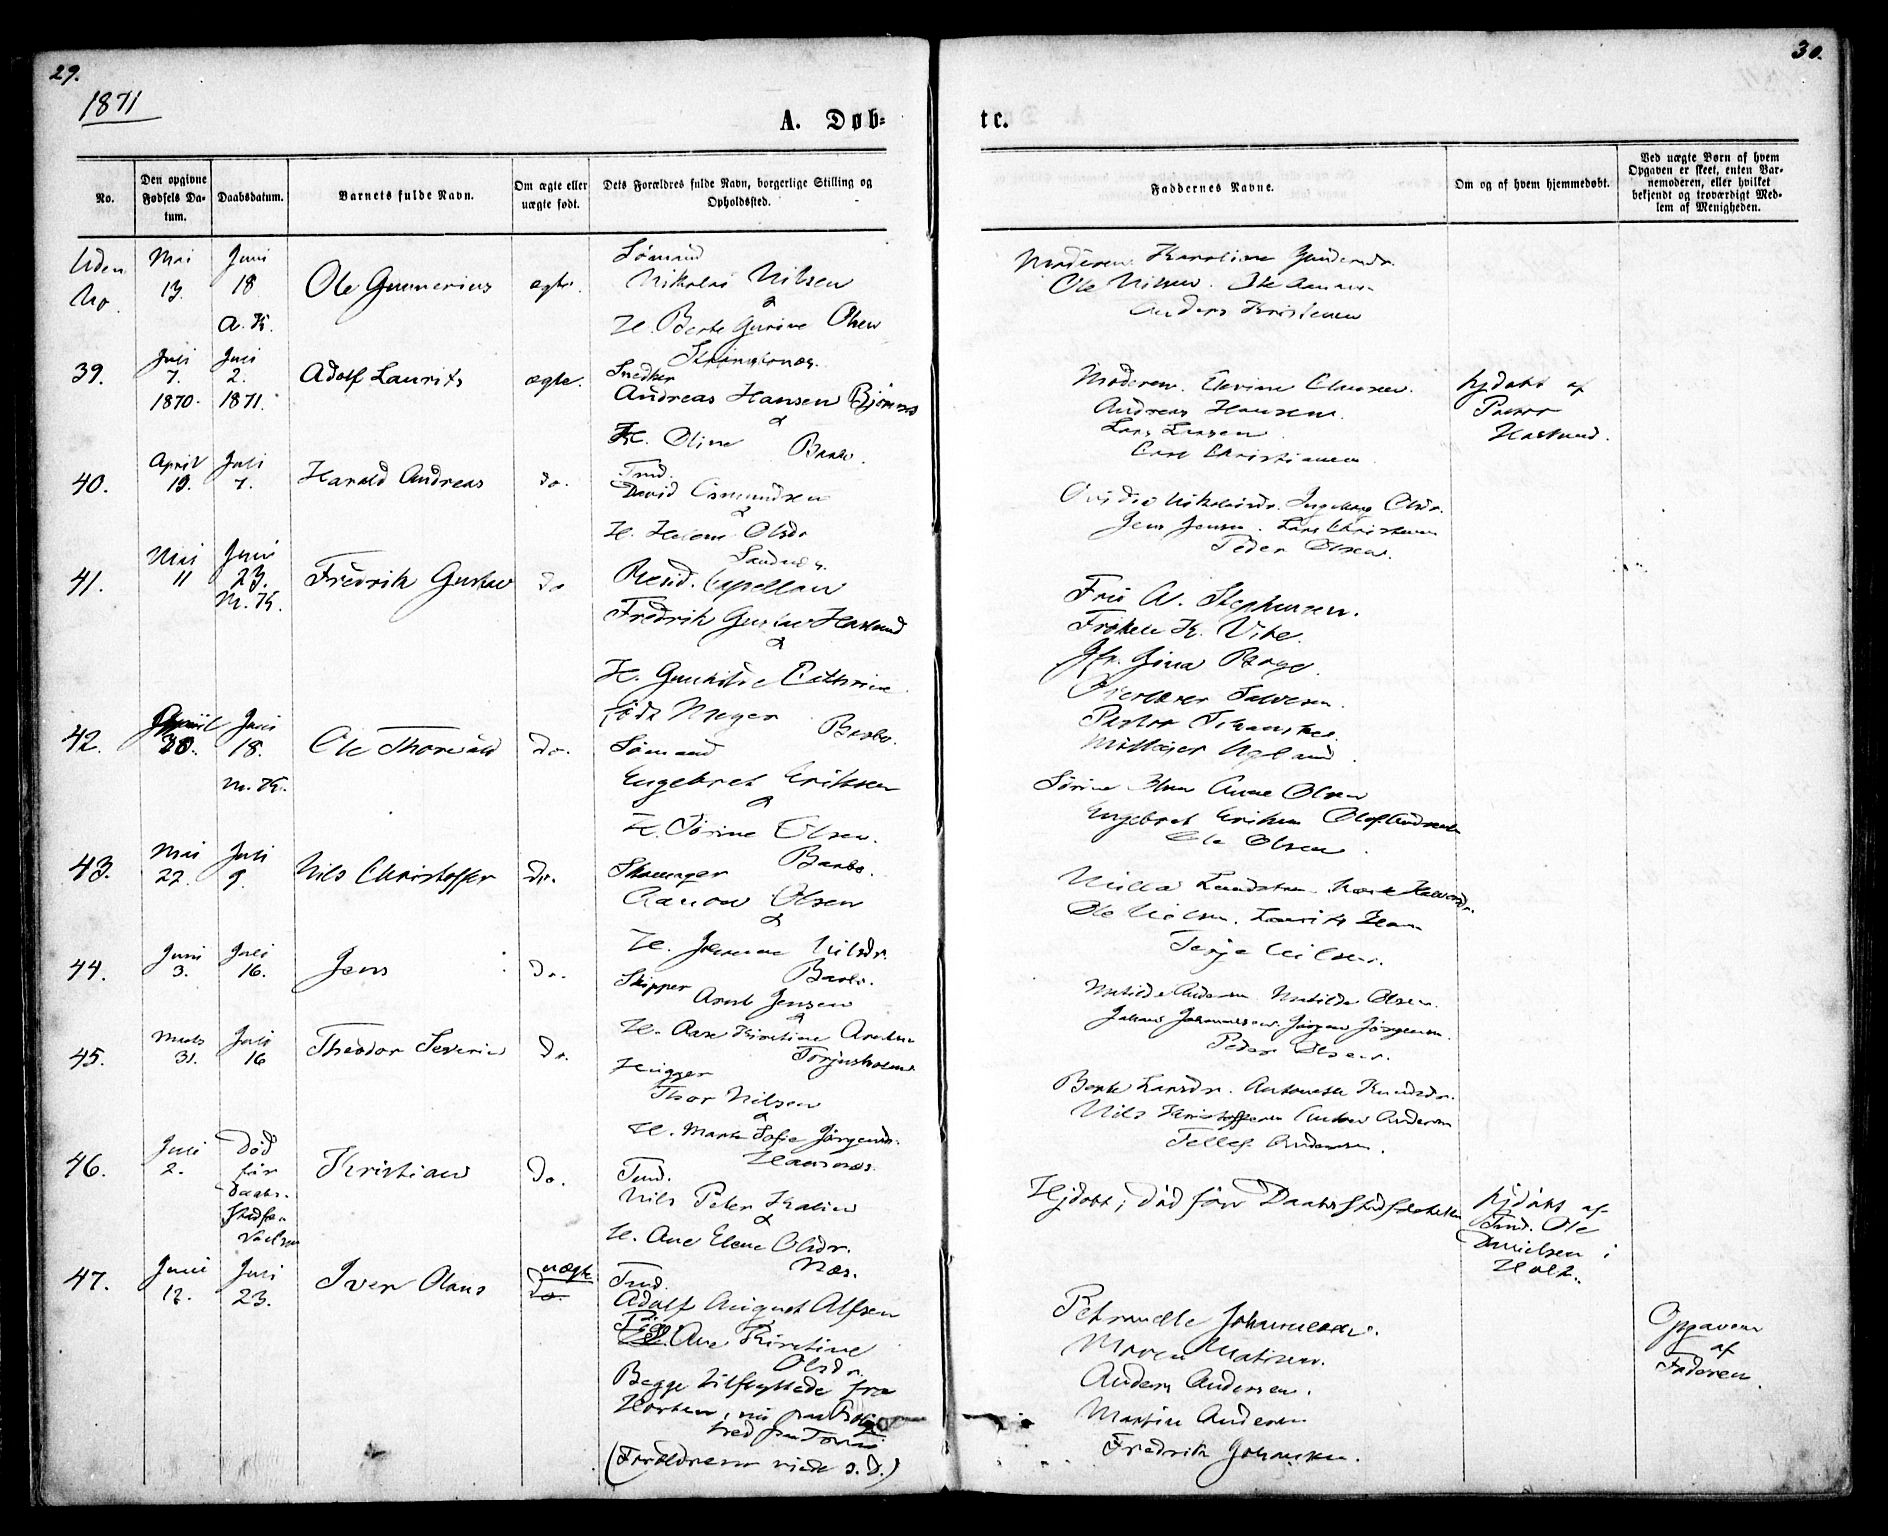 29.
30.
1871
A. Døb=
te.
No.
Den opgivne Fødsels Da-tum.
Daabsdatum.
Barnets fulde Navn.
Om ægte eller uægte født.
Dets Forældres fulde Navn, borgerlige Stilling og Opholdssted.
Faddernes Navne.
Om og af hvem hjemmedøbt.
Ved uægte Børn af hvem Opgaven er skeet, enten Bar-nemoderen, eller hvilket bekjendt og troværdigt Med-lem af Menigheden.
Uden No.
Mai 13.
Juni 18 A. K.
Ole Gunnerius
ægte.
Sømand
Nikolai Nilsen
&
H. Berte Gurine Olsen
Moderen. Karoline
Ole Nilsen.
Anders Kristensen
39.
Juli 7. 1870.
Juli 2. 1871.
Adolf Laurits
ægte.
Snedker
Andreas Hansen Bjønnes
&
H. Oline Barbo.
Moderen. Elevine Clausen.
Andreas Hansen.
Lars Larsen
Carl Christiansen
hjdøbt af
Pastor
Haslund.
40.
April 19.
Juli 7.
Harald Andreas
do.
Tmd.
David Osmundsen
&
H. Helene Olsdr
Nikolaisdr. Ingeborg Olsdr.
Jens Jensen. Lars Christensen
Peder Olsen.
41.
Mai 11
Juni 23. M. K.
Fredrik Gustav
do
Resid. Capellan
Fredrik Gustav Haslund
&
H. Gunhilde Cathrine
født Meyer Barbo.
Fru A. Stephansen.
Frøken K. Vibe.
Jfr. Gina Borge
Salvesen.
Pastor
Ugland.
42.
April 30.
Juni 18. M. K.
Ole Thorvald
do.
Sømand
Engebret Eriksen
&
H. Sørine Olsen.
Barbo.
Sørine Olsen Anne Olsen
Engebret Eriksen Olaf Andersen
Ole Olsen.
43.
Mai 22.
Juli 9.
Nils Christoffer
do.
Aanon Olsen
&
H. Johanne Nilsdr.
Barbo.
Milla Lundstrøm.
Ole Nielsen. Laurits
Terje Nilsen.
44.
Juni 3.
Juli 16.
Jens
do.
Skipper
Arnt Jensen
&
H. Aase Kirstine Arntsen
Torjusholmen
Matilde Andersen Matilde Olsen.
Johan Johannesen. Jørgen Jørgensen.
Peder Olsen.
45.
Marts 31.
Juli 16
Theodor Severin
do.
Hugger
Thor Nilsen
&
H. Marte Sofie Jørgensdr.
Berte Larsdr. Antonette Knudsdr.
Nils Kristoffersen Anders Andersen
Tellef Andersen.
46.
Juli 2.
Død før Daabs-
Kristian
do.
Tmd.
Nils Peter Kalin
&
H. Ane Elene Olsdr.
Næs.
Hjdøbt; død før Daabs
hjdøbt af
Tmd. Ole
Danielsen i
Holt.
47.
Juni 12.
Juli 23.
Iver Olaus
uægte
do.
Tmd.
Adolf August Alfsen
Pi. Ane Kirstine
Olsdr.
Begge tilflyttede fra
Horten, nu paa
(Forældrene viede s. D.)
Petronelle Johannesen.
Maren Matisen.
Anders Andersen.
Martin Andersen
Fredrik Johansen.
Opgaven
af
Faderen.